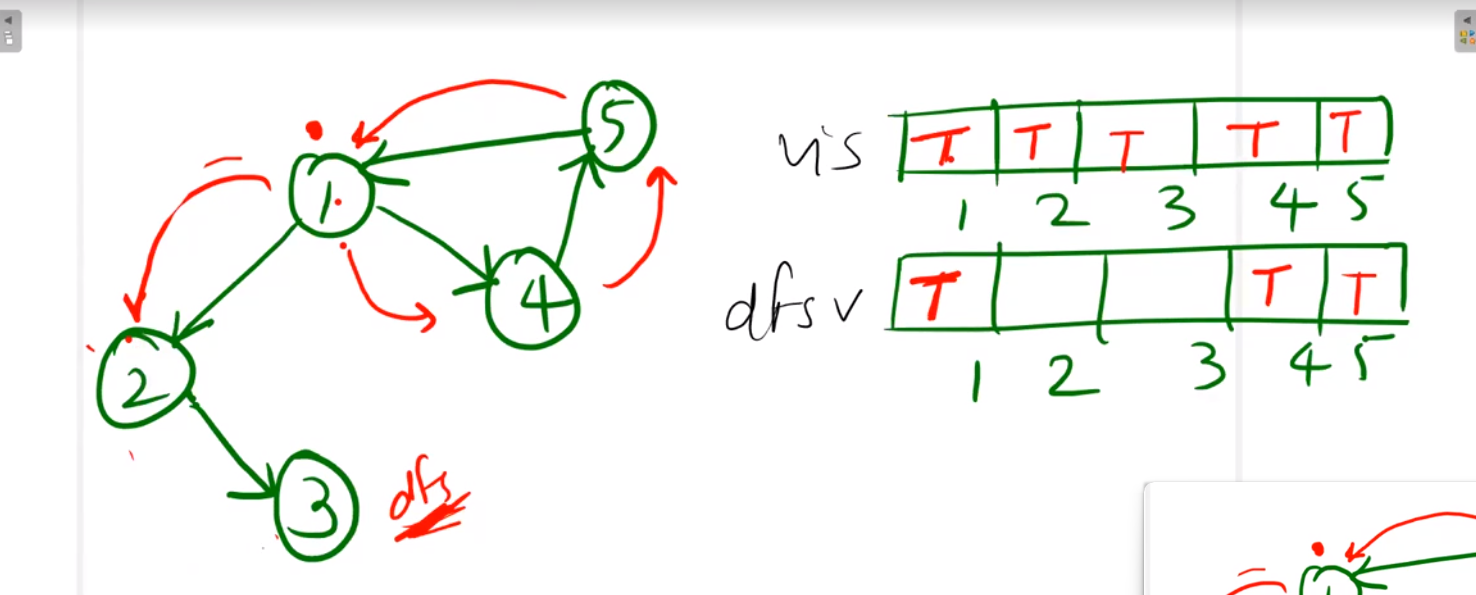 5
1
4
2
3
dfs
vis T T T T T
1 2 3 4 5
dfs v T T T
1 2 3 4 5
1